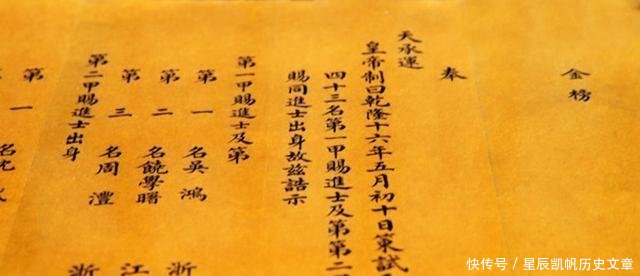 金榜
奉
天承運
皇帝制曰乾隆十六年五月初十日策試
四十三名第一甲賜進士及第第二
賜同進士出身故兹誥示
第一甲賜進士及第
第一名吳鴻浙
第二名饒學曙江
第三名周澧浙
第二甲賜進士出身
第一名
快传号 / 星辰凯帆历史文章